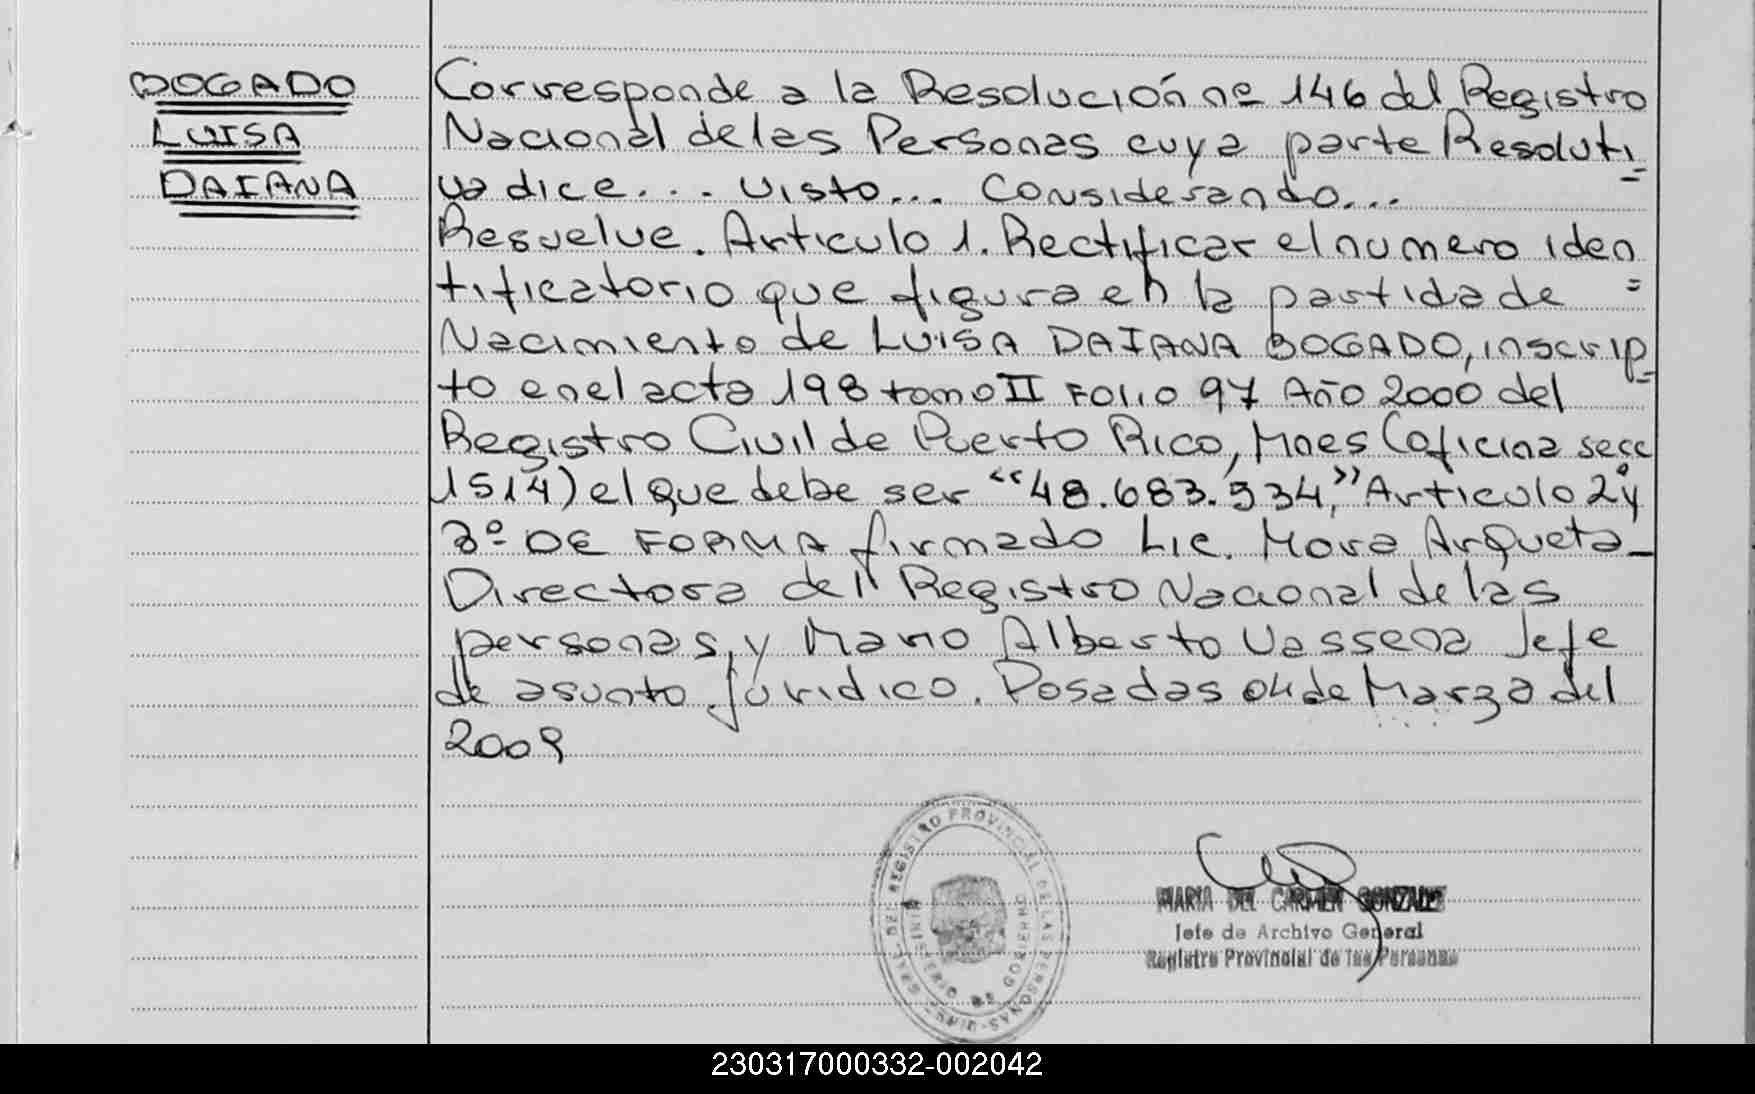 BOGADO
LUISA
DAIANA
Corresponde a la Resolución nº 146 del Registro
Nacional de las Personas cuya parte Resoluti
va dice... Visto... Considerando...
Resuelve. Articulo 1. Rectificar el numero iden
tificatorio que figura en la partida de =
Nacimiento de LUISA DAIANA BOGADO, inscrip
to en el acta 198 tomo II FOLIO 97 Año 2000 del
Registro Civil de Puerto Rico, Mnes (oficina secc
1514) el que debe ser "48.683.934," Articulo 2º y
3º DE FORMA firmado Lic. Mora Arqueta_
Directora del Registro Nacional de las
personas, y Mario Alberto Vassena Jefe
de asunto juridico. Posadas 04 de Marzo del
2009
REGISTRO PROVINCIAL DE LAS PERSONAS
MINISTERIO DE GOBIERNO
MARIA DEL CARMEN GONZALEZ
Jefe de Archivo General
Registro Provincial de las Personas
230317000332-002042